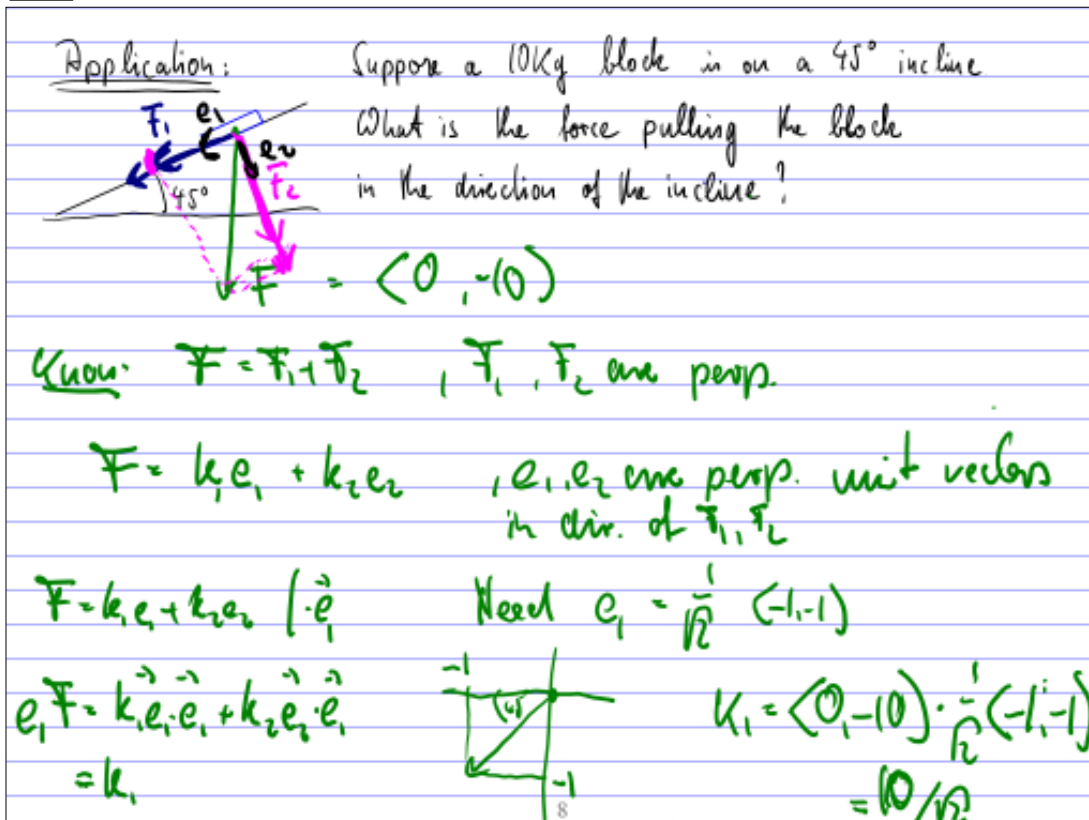 Application: Suppose a 10Kg block is on a 45° incline
What is the force pulling the block
in the direction of the incline?
F₁ e₁ e₂ F₂ 45°
F = <0, -10>
Know: F = F₁ + F₂ , F₁, F₂ are perp.
F = k₁e₁ + k₂e₂ , e₁, e₂ are perp. unit vectors
in dir. of F₁, F₂
F = k₁e₁ + k₂e₂ | ·e⃗₁ Need e₁ = 1/√2 <-1,-1>
e₁F = k₁e⃗₁·e⃗₁ + k₂e⃗₂·e⃗₁ -1 45 K₁ = <0,-10> · 1/√2 <-1,-1>
= k₁ -1 = 10/√2
8